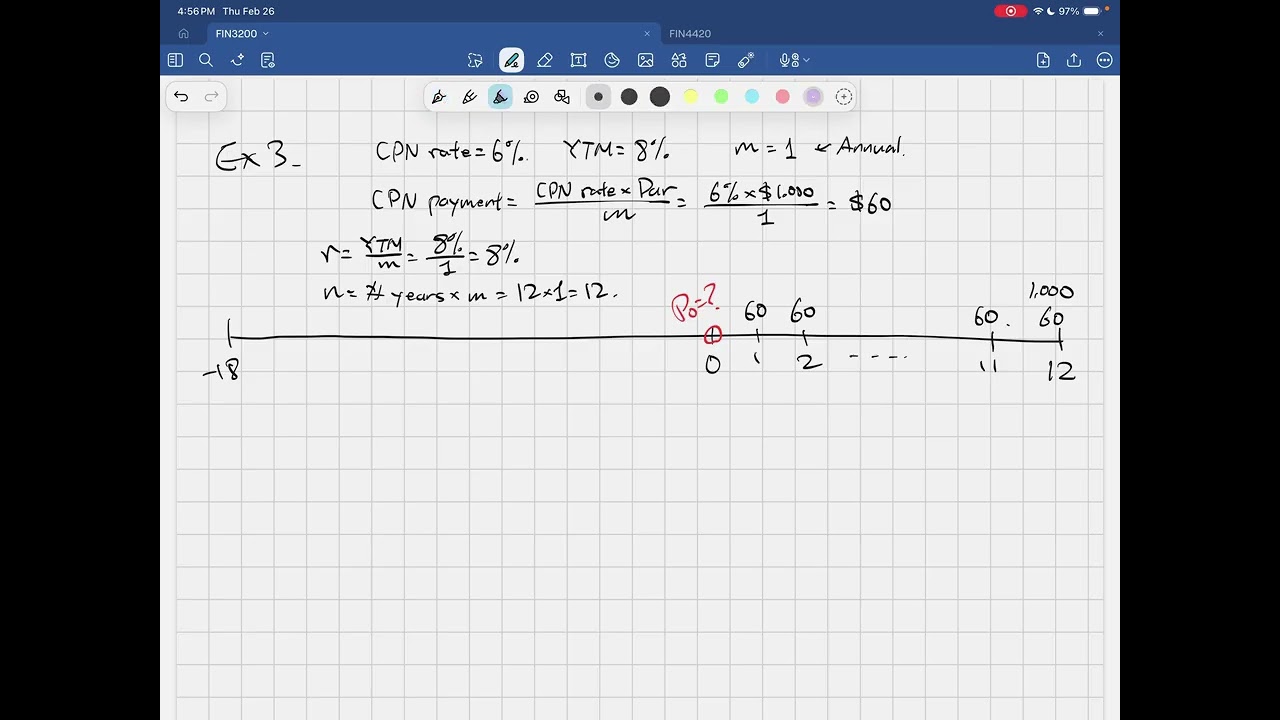 4:56 PM Thu Feb 26
97%
FIN3200
FIN4420
Ex 3. CPN rate = 6%. YTM = 8% m = 1 ← Annual.
CPN payment = CPN rate × Par / m = 6% × $1,000 / 1 = $60
r = YTM / m = 8% / 1 = 8%.
n = # years × m = 12 × 1 = 12.
P0 = ? 60 60 60. 1,000 60
-18 0 1 2 ---- 11 12